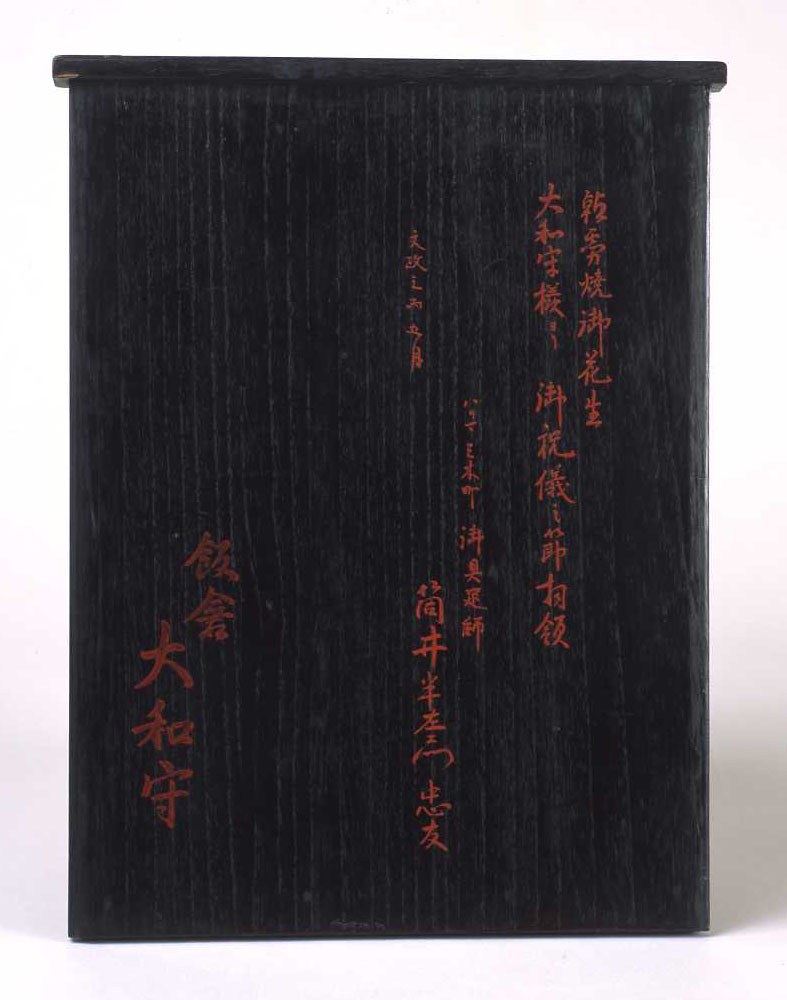 焼御花生
大和守様ヨリ 御祝儀之節拝領
三木町 御具足師
筒井半左衛門忠友
文政 五月
飯
大和守